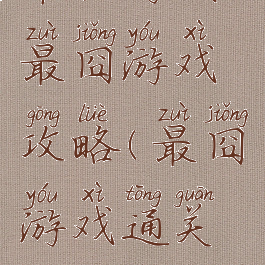 zuì jiǒng yóu xì
最囧游戏
gōng lüè zuì jiǒng
攻略(最囧
yóu xì tōng guān
游戏通关